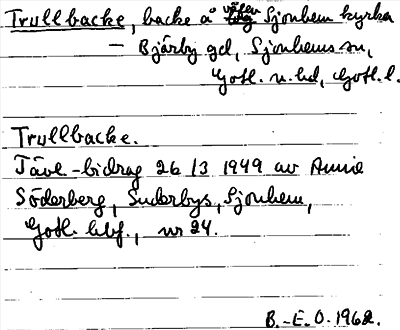 Trullbacke, backe å vägen Sjonhem kyrka
– Bjärby gd, Sjonhems sn,
Gotl. n. hd, Gotl. l.
Trullbacke.
Tävl.-bidrag 26/3 1949 av Annie
Söderberg, Suderbys, Sjonhem,
Gotl. hbf., nr 24.
B.-E.O. 1962.